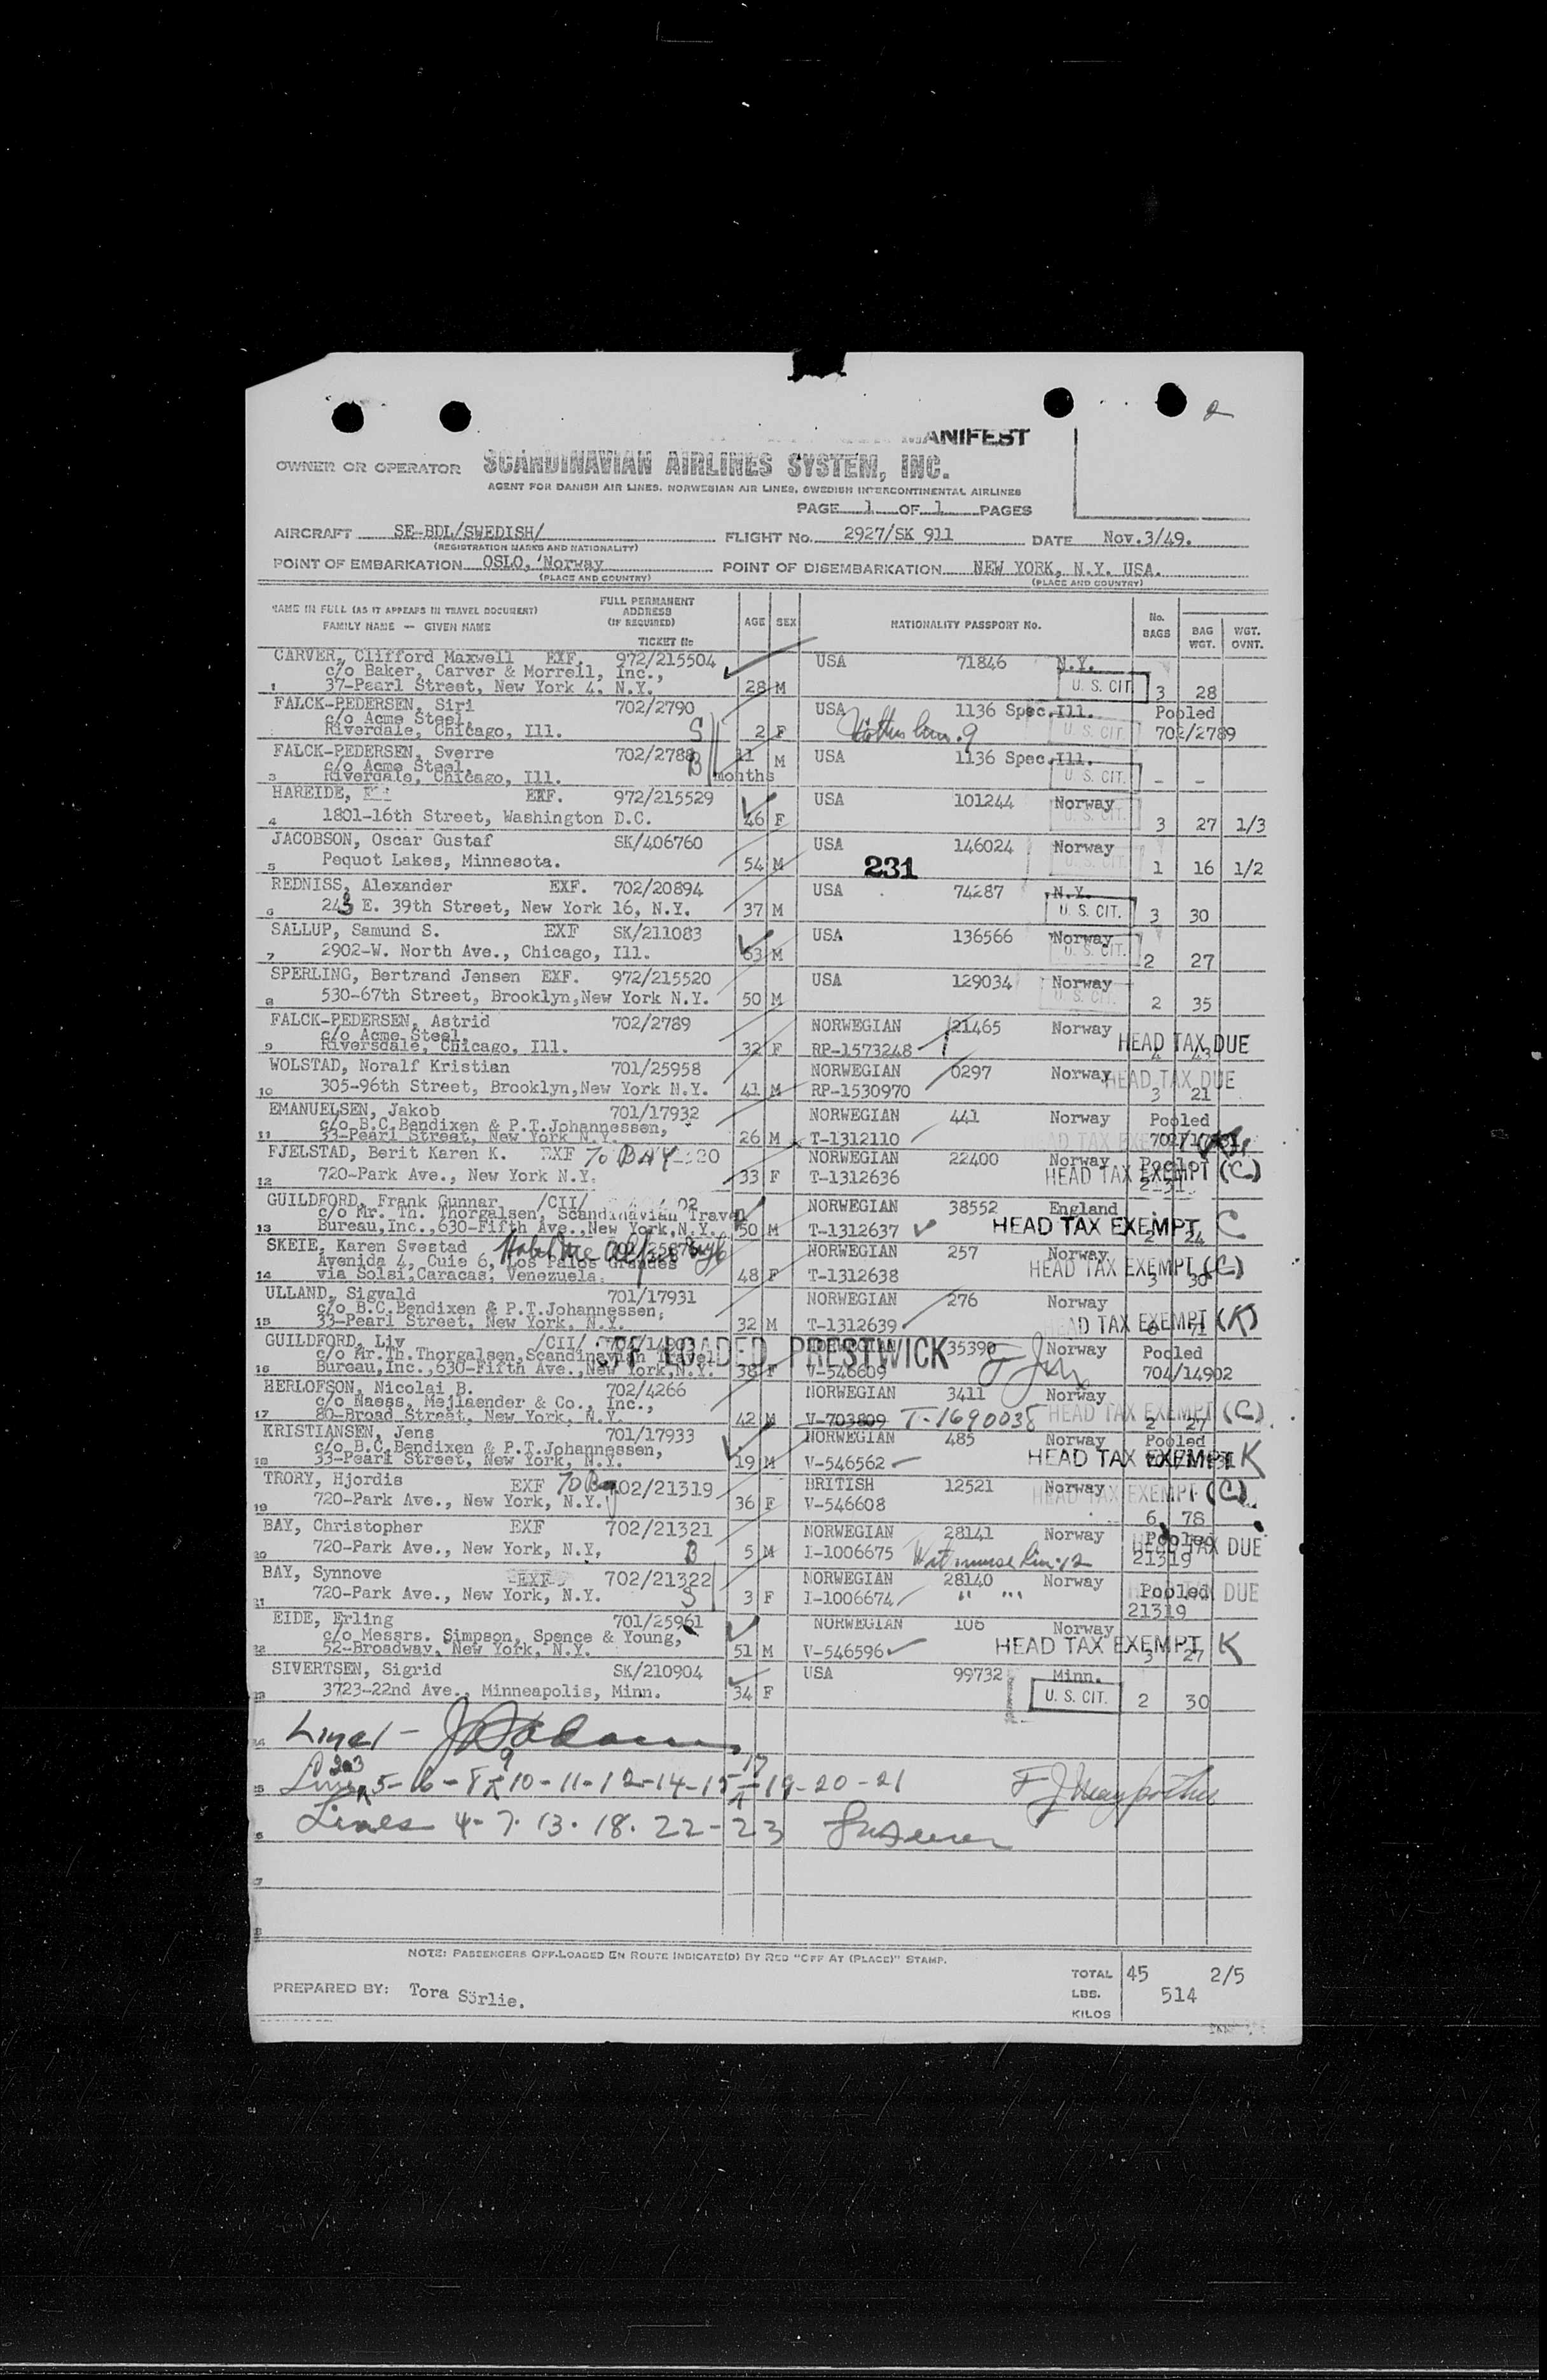 ANIFEST
OWNER OR OPERATOR SCANDINAVIAN AIRLINES SYSTEM, INC.
AGENT FOR DANISH AIR LINES, NORWEGIAN AIR LINES, SWEDISH INTERCONTINENTAL AIRLINES
PAGE 1 OF 1 PAGES
AIRCRAFT SE-BDL/SWEDISH/ FLIGHT No. 2927/SK 911 DATE Nov.3/49.
(REGISTRATION MARKS AND NATIONALITY)
POINT OF EMBARKATION OSLO, Norway POINT OF DISEMBARKATION NEW YORK, N.Y. USA.
(PLACE AND COUNTRY) (PLACE AND COUNTRY)
NAME IN FULL (AS IT APPEARS IN TRAVEL DOCUMENT) FULL PERMANENT ADDRESS (IF REQUIRED) AGE SEX NATIONALITY PASSPORT No. No. BAGS BAG WGT. WGT. OVNT.
FAMILY NAME — GIVEN NAME TICKET No
CARVER, Clifford Maxwell EXF. 972/215504 USA 71846 N.Y.
c/o Baker, Carver & Morrell, Inc.,
1 37-Pearl Street, New York 4, N.Y. 28 M U. S. CIT. 3 28
FALCK-PEDERSEN, Siri 702/2790 USA 1136 Spec.Ill. Pooled
c/o Acme Steel,
Riverdale, Chicago, Ill. S 2 F U. S. CIT. 702/2789
FALCK-PEDERSEN, Sverre 702/2788 11 M USA 1136 Spec.Ill.
c/o Acme Steel, B
3 Riverdale, Chicago, Ill. months U. S. CIT. - -
HAREIDE, EXF. 972/215529 USA 101244 Norway
4 1801-16th Street, Washington D.C. 46 F U. S. CIT. 3 27 1/3
JACOBSON, Oscar Gustaf SK/406760 USA 146024 Norway
5 Pequot Lakes, Minnesota. 54 M 231 1 16 1/2
REDNISS, Alexander EXF. 702/20894 USA 74287 N.Y.
6 243 E. 39th Street, New York 16, N.Y. 37 M U. S. CIT. 3 30
SALLUP, Samund S. EXF SK/211083 USA 136566 Norway
7 2902-W. North Ave., Chicago, Ill. 63 M U. S. CIT. 2 27
SPERLING, Bertrand Jensen EXF. 972/215520 USA 129034 Norway
8 530-67th Street, Brooklyn,New York N.Y. 50 M U. S. CIT. 2 35
FALCK-PEDERSEN, Astrid 702/2789 NORWEGIAN 21465 Norway HEAD TAX DUE
c/o Acme Steel,
9 Riversdale, Chicago, Ill. 32 F RP-1573248 4 43
WOLSTAD, Noralf Kristian 701/25958 NORWEGIAN 0297 Norway HEAD TAX DUE
10 305-96th Street, Brooklyn,New York N.Y. 41 M RP-1530970 3 21
EMANUELSEN, Jakob 701/17932 NORWEGIAN 441 Norway Pooled
c/o B.C.Bendixen & P.T.Johannessen,
11 33-Pearl Street, New York N.Y. 26 M T-1312110
FJELSTAD, Berit Karen K. EXF To BAY NORWEGIAN 22400 Norway
12 720-Park Ave., New York N.Y. 33 F T-1312636 HEAD TAX EXEMPT (C)
GUILDFORD, Frank Gunnar /CII/ NORWEGIAN 38552 England
c/o Mr. Th. Thorgalsen, Scandinavian Travel
13 Bureau,Inc.,630-Fifth Ave.,New York,N.Y. 50 M T-1312637 HEAD TAX EXEMPT C 24
SKEIE, Karen Svestad NORWEGIAN 257 Norway
Avenida 4, Cuie 6, Los Palos Grandes HEAD TAX EXEMPT (C)
14 via Solsi,Caracas, Venezuela. 48 F T-1312638 3 30
ULLAND, Sigvald 701/17931 NORWEGIAN 276 Norway
c/o B.C.Bendixen & P.T.Johannessen,
15 33-Pearl Street, New York, N.Y. 32 M T-1312639 AD TAX EXEMPT (K)
GUILDFORD, Liv /CII/ OFF LOADED PRESTWICK 35390 Norway Pooled
c/o Mr.Th.Thorgalsen,Scandinavian Travel
16 Bureau,Inc.,630-Fifth Ave.,New York,N.Y. 38 F V-546609 704/14902
HERLOFSON, Nicolai B. 702/4266 NORWEGIAN 3411 Norway
c/o Naess, Mejlaender & Co., Inc.,
17 80-Broad Street, New York, N.Y. 42 M V-703809 T-1690038 HEAD TAX EXEMPT (C) 2 27
KRISTIANSEN, Jens 701/17933 NORWEGIAN 485 Norway Pooled
c/o B.C.Bendixen & P.T.Johannessen,
18 33-Pearl Street, New York, N.Y. 19 M V-546562 HEAD TAX EXEMPT K
TRORY, Hjordis EXF To Bay 702/21319 BRITISH 12521 Norway
19 720-Park Ave., New York, N.Y. 36 F V-546608 HEAD TAX EXEMPT (C)
6 78
BAY, Christopher EXF 702/21321 NORWEGIAN 28141 Norway Pooled
20 720-Park Ave., New York, N.Y, B 5 M I-1006675 Wit nurse line 12 21319 HEAD TAX DUE
BAY, Synnove EXF 702/21322 NORWEGIAN 28140 Norway Pooled
21 720-Park Ave., New York, N.Y. S 3 F I-1006674 " " 21319 DUE
EIDE, Erling 701/25961 NORWEGIAN 106 Norway
c/o Messrs. Simpson, Spence & Young,
22 52-Broadway, New York, N.Y. 51 M V-546596 HEAD TAX EXEMPT K 3 27
SIVERTSEN, Sigrid SK/210904 USA 99732 Minn.
23 3723-22nd Ave., Minneapolis, Minn. 34 F U. S. CIT. 2 30
Line 1 -
Lines 2 3 5-6-8 9 10-11-12-14-15 17 19-20-21
Lines 4-7.13.18.22-23
NOTE: PASSENGERS OFF-LOADED EN ROUTE INDICATE(D) BY RED "OFF AT (PLACE)" STAMP.
TOTAL 45 2/5
PREPARED BY: Tora Sörlie. LBS. 514
KILOS